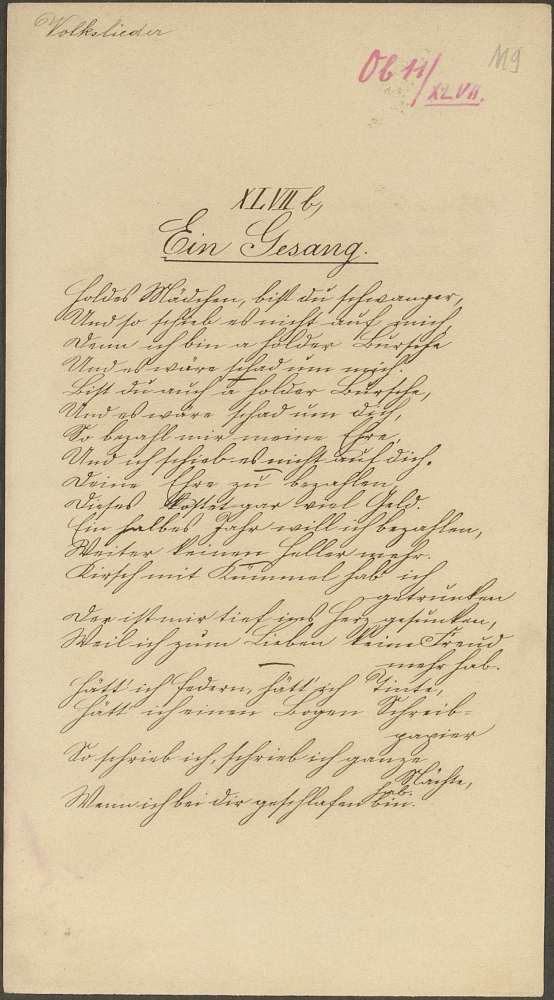 Volkslieder
Ob 11/XLVII.
119
XLVII b,
Ein Gesang.
Holdes Mädchen, bist du schwanger,
Und so schieb es nicht auf mich,
Denn ich bin a holder Bursche
Und es wäre schad um mich.
Bist du auch a holder Bursche,
Und es wäre schad um dich,
So bezahl mir meine Ehre,
Und ich schieb es nicht auf dich.
Deine Ehre zu bezahlen,
Dieses kostet gar viel Geld.
Ein halbes Jahr will ich bezahlen,
Weiter keinen Heller mehr.
Kirsch mit Kümmel hab ich
getrunken
Der ist mir tief ins Herz gesunken,
Weil ich zum Lieben keine Freud
mehr hab.
Hätt' ich Federn, hätt' ich Tinte,
Hätt' ich einen Bogen Schreib-
papier
So schrieb ich, schrieb ich ganze
Nächte,
Wenn ich bei dir geschlafen hab. bin.